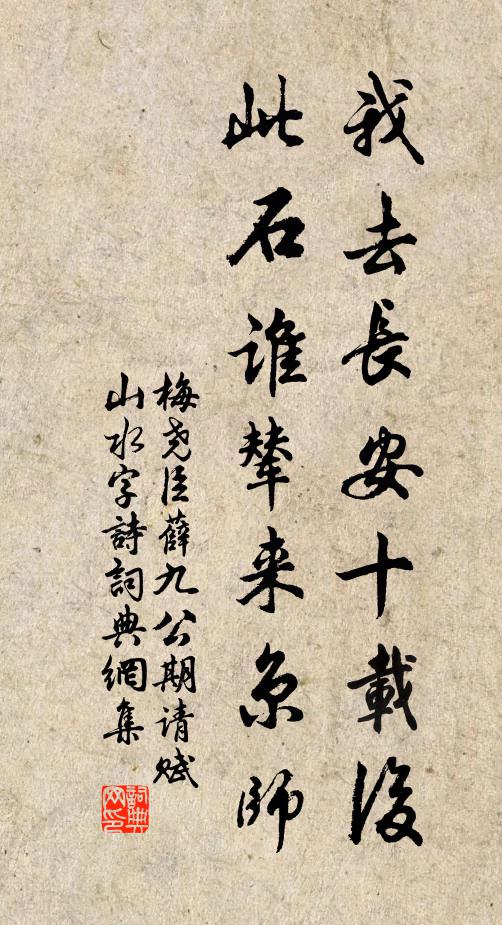 我去長安十載後
此石誰輦来京師
梅堯臣薛九公期请赋
山水字詩詞典網集
詞典网印